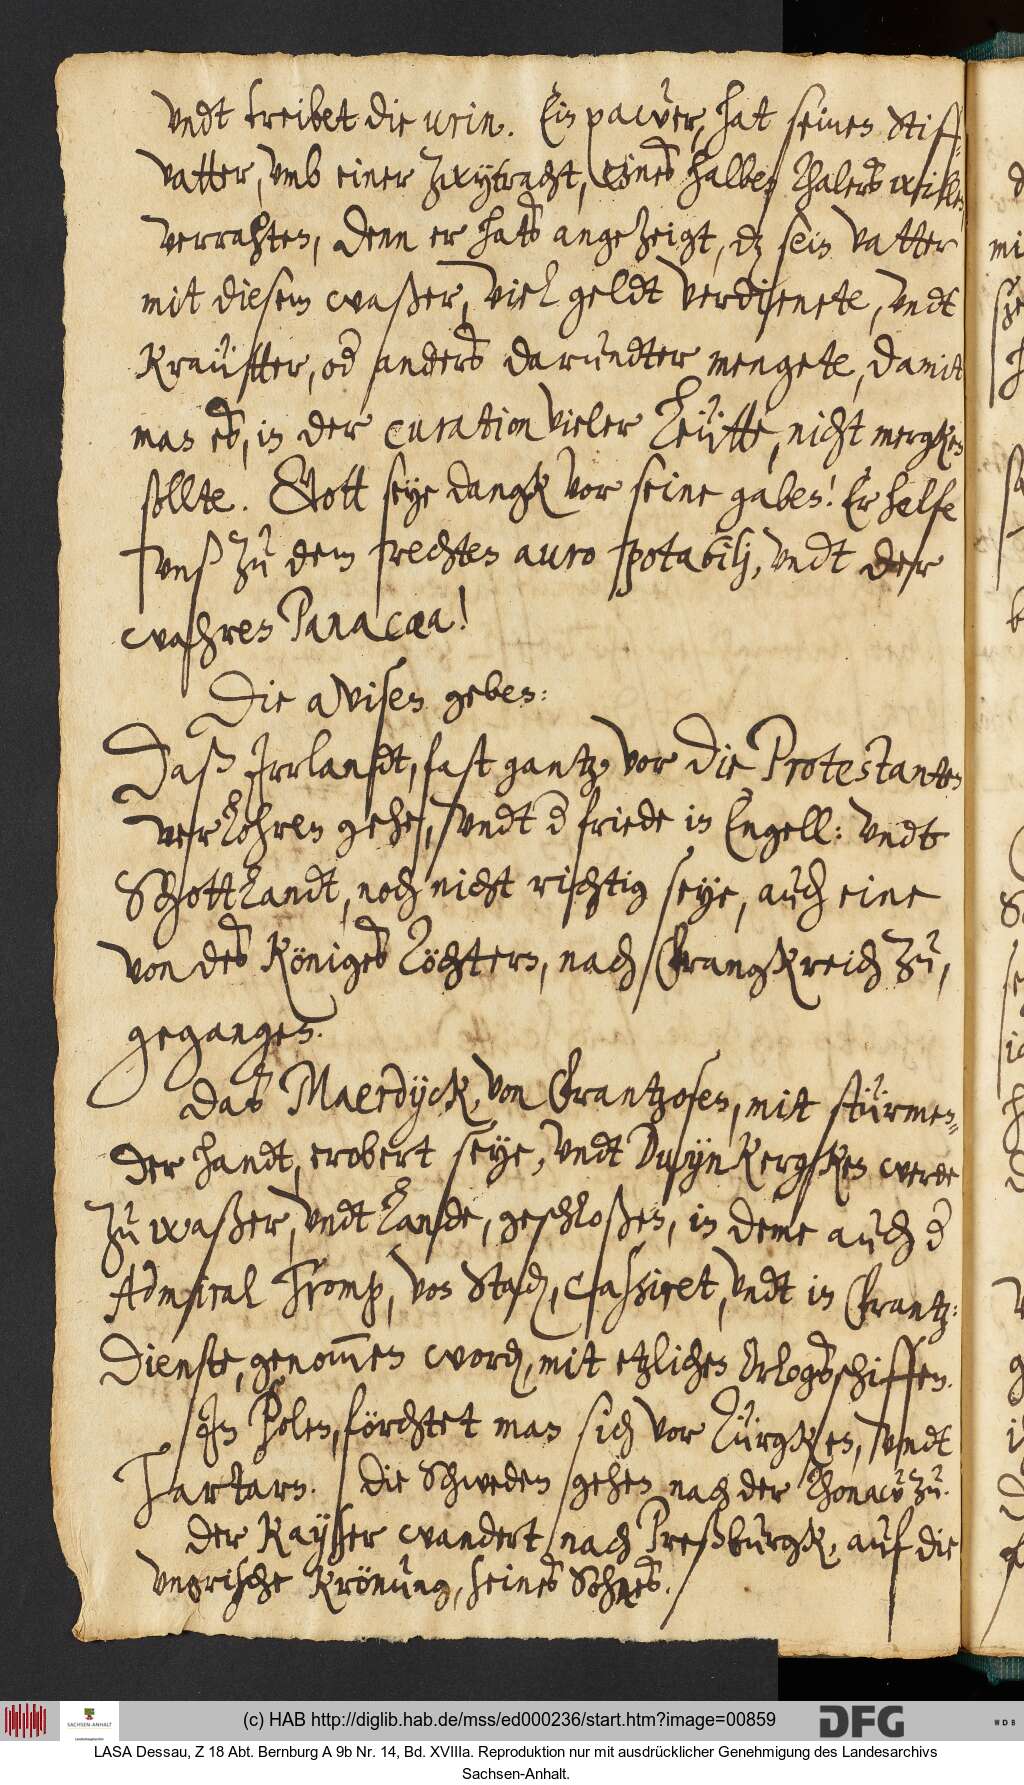 vndt treibet die urin. Ein pawer, hat seinen Stiff-
vatter, vmb einer zwytracht, eines halben Thalers willen
verrahten, denn er hats angezeigt, dz sein vatter
mit diesem waßer, viel geldt verdienete, vndt
Kraütter, od anders darundter mengete, damit
man es, in der curation vieler Leütte, nicht mergken
sollte. Gott seye dangk vor seine gaben! Er helfe
vnß zu dem rechten auro potabilj, vndt der
wahren Panacæa!
Die avisen geben:
Daß Irrlandt, fast gantz vor die Protestanten
verlohren gehe, vndt d friede in Engell: vndt
Schottlandt, noch nicht richtig seye, auch eine
von des Königes Töchtern, nach Frangkreich zu,
gegangen.
Das Maerdyck, von Frantzosen, mit stürmen-
der handt, erobert seye, vndt Duynkergken werde
zu waßer, vndt Lande, geschloßen, in deme auch d
Admiral Tromp, von Stadn, cassiret, vndt in Frantz:
Dienste, genommen worden, mit etzlichen Orlogsschiffen.
In Polen, förchtet man sich vor Türgken, vndt
Tartarn. Die Schweden gehen nach der Thonaw zu.
Der Kayser wandert nach Preßburgk, auf die
vngrische Krönung, seines Sohns.
(c) HAB http://diglib.hab.de/mss/ed000236/start.htm?image=00859
SACHSEN-ANHALT
DFG
WDB
LASA Dessau, Z 18 Abt. Bernburg A 9b Nr. 14, Bd. XVIIIa. Reproduktion nur mit ausdrücklicher Genehmigung des Landesarchivs
Sachsen-Anhalt.